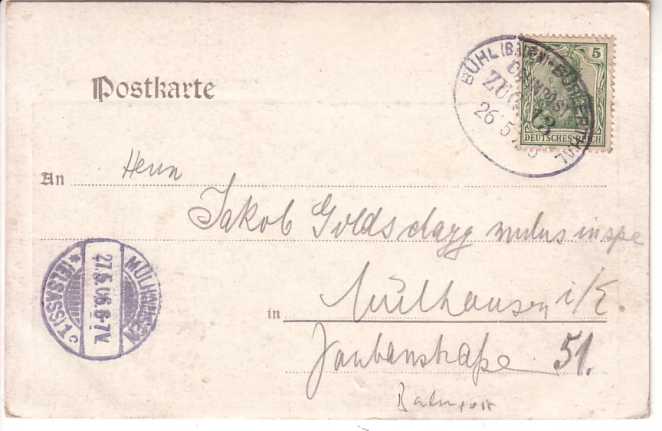 Postkarte
BÜHL (BADEN)-BÜHLERTHAL
BAHNPOST
ZUG 13
26 5
5
DEUTSCHES REICH
An Herrn
Jakob Goldschagg
in Mülhausen i/E.
Taubenstraße 51.
MÜLHAUSEN
27.5.06.6-7V.
(ELSASS) c 1
Bahnpost